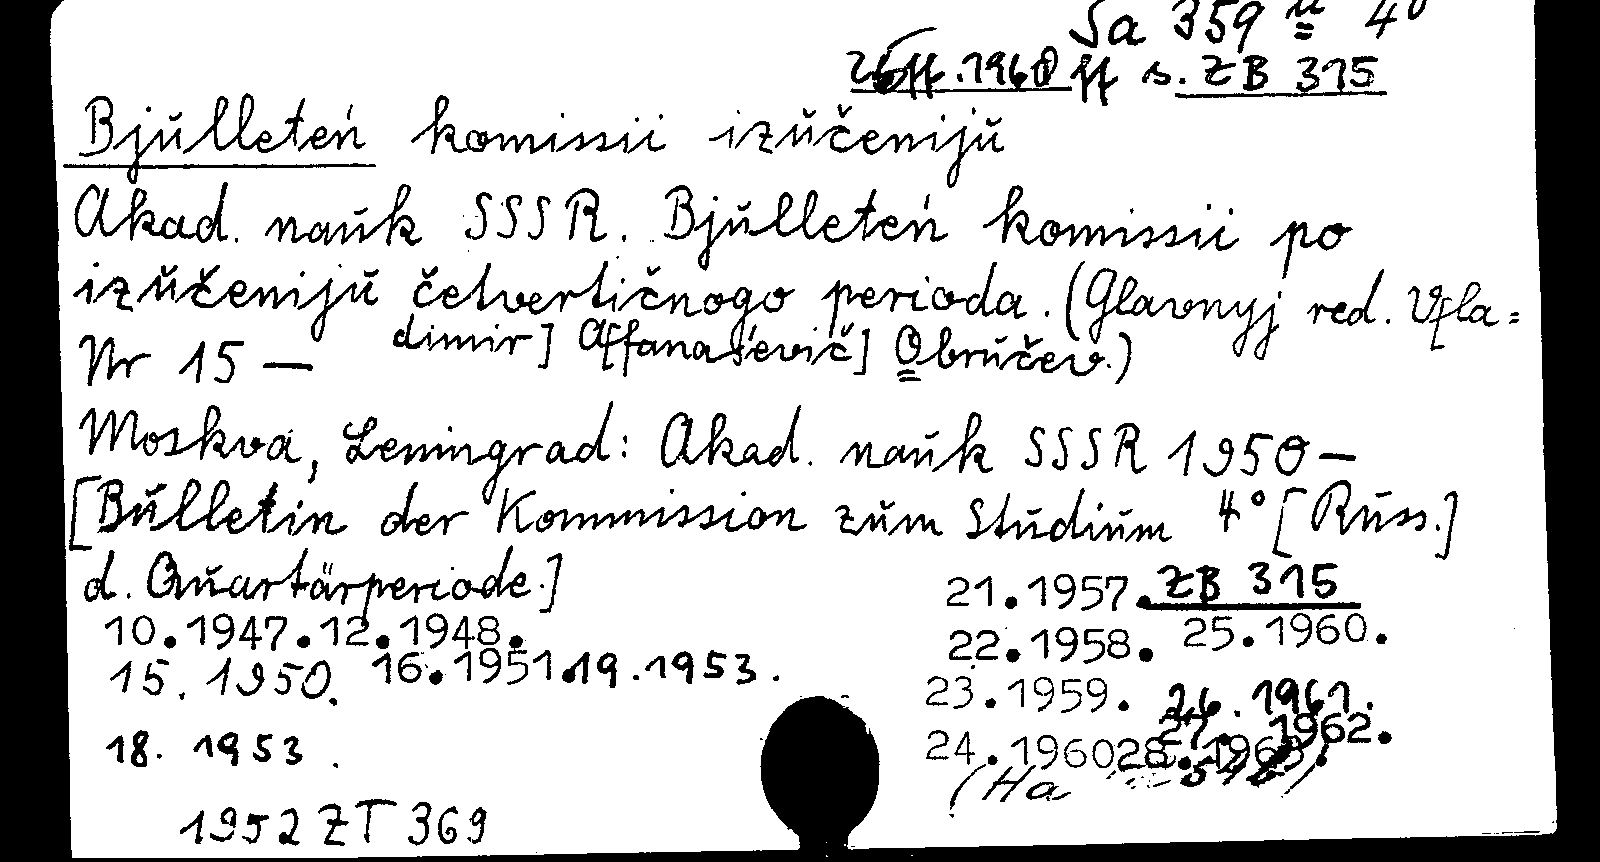 Sa 359 u 4°
26ff.1960ff s. ZB 315
Bjulleteń komissii izučeniju
Akad. nauk SSSR. Bjulleteń komissii po
izučeniju četvertičnogo perioda. (Glavnyj red. V[la=
dimir] A[fanaśevič] Obručev.)
Nr 15 —
Moskva, Leningrad: Akad. nauk SSSR 1950 —
[Bulletin der Kommission zum Studium 4° [Russ.]
d. Quartärperiode.]
21.1957. ZB 315
10.1947.12.1948.
22.1958. 25.1960.
15.1950. 16.1951.19.1953.
23.1959. 26.1961.
27. 1962.
18. 1953.
24.1960 28.1963.
(Ha
1952 ZT 369